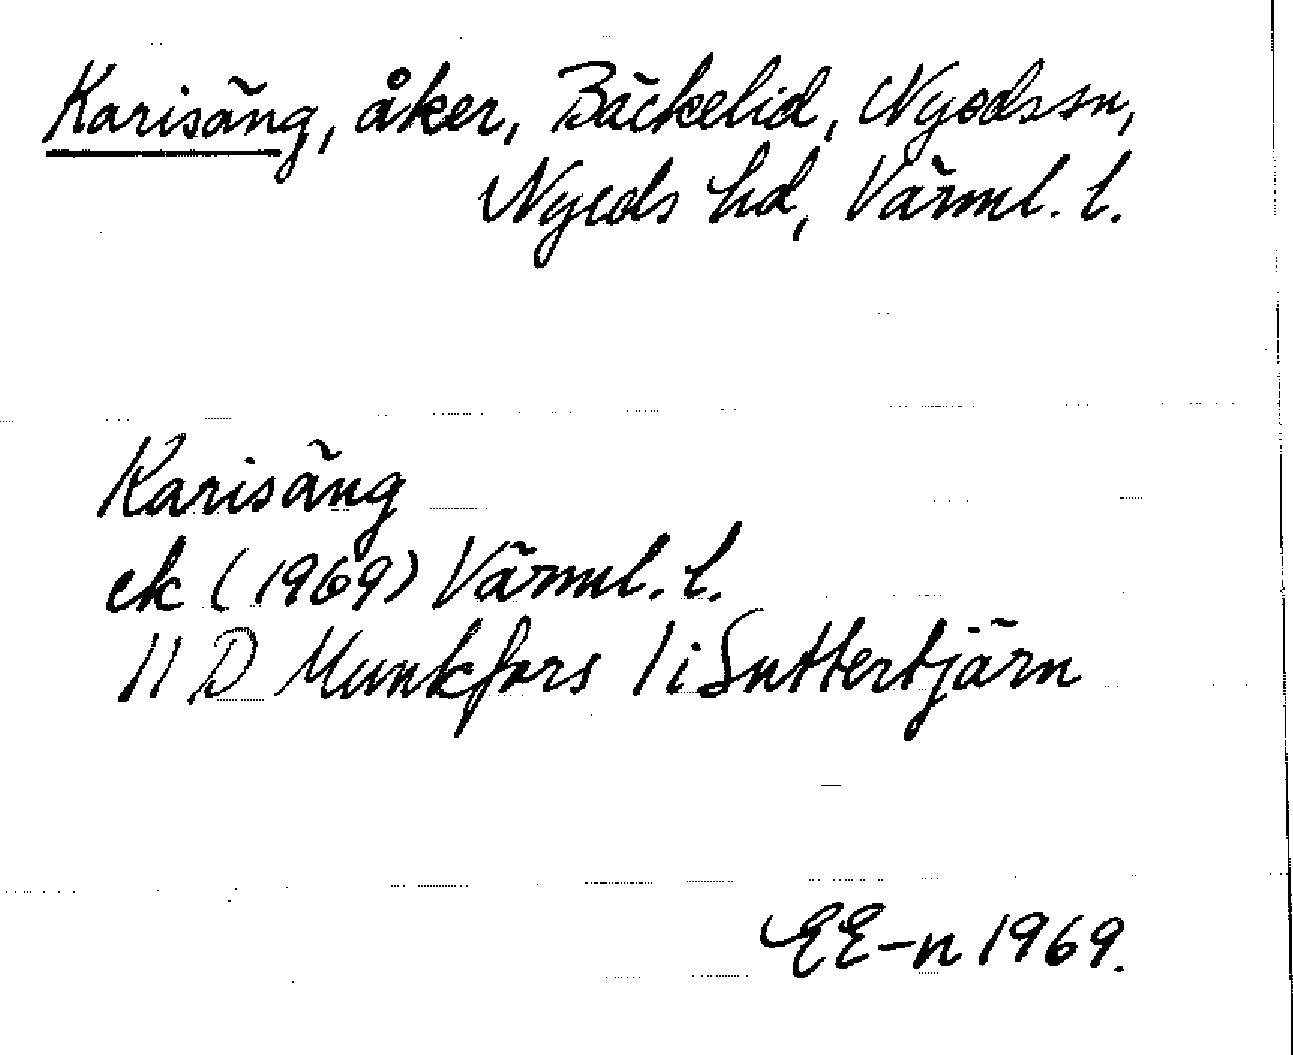 Karisäng, åker, Bäckelid, Nyedssn,
Nyeds hd, Värml. l.
Karisäng
ek (1969) Värml. l.
11 D Munkfors 1 i Suttertjärn
EE-n 1969.